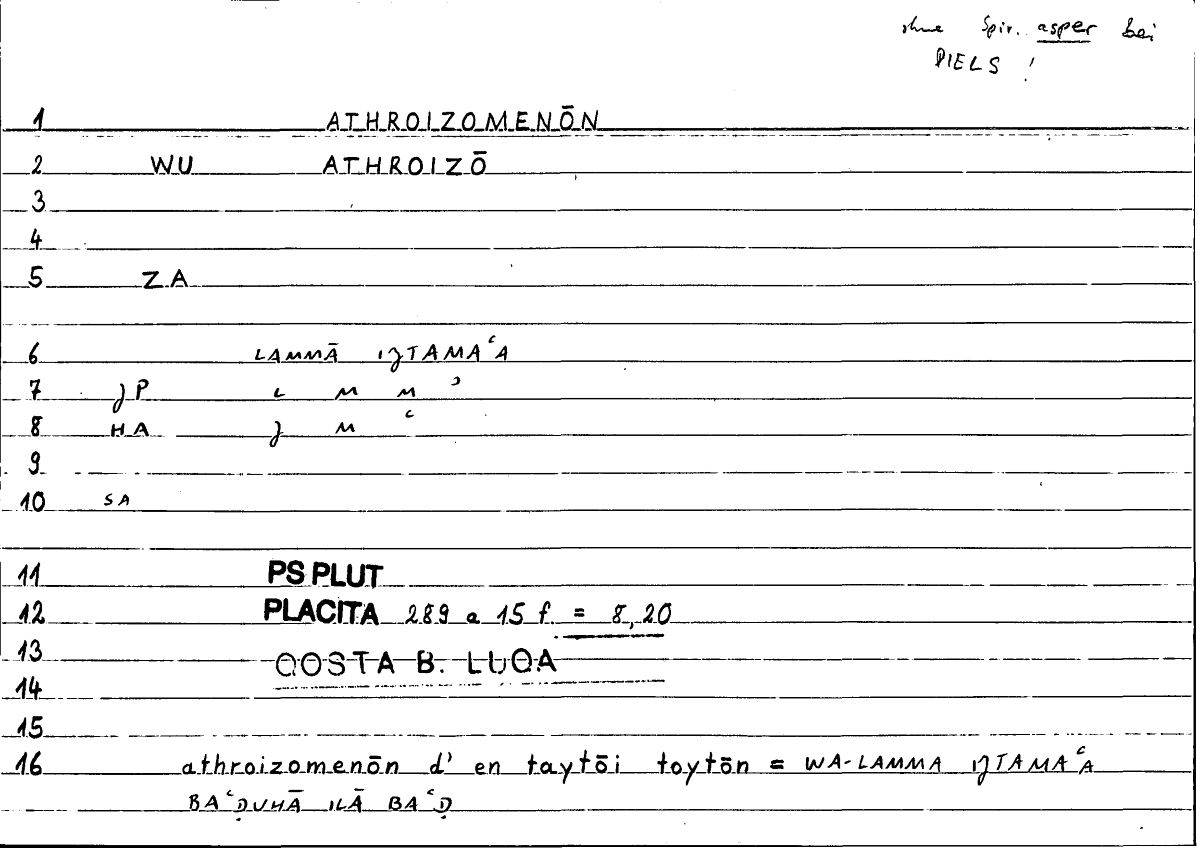 ohne Spir. asper bei
DIELS !
1 ATHROIZOMENŌN
2 WU ATHROIZŌ
3
4
5 ZA
6 LAMMĀ IǧTAMAʿA
7 ǧP L M M ʾ
8 HA ǧ M ʿ
9
10 SA
11 PS PLUT
12 PLACITA 289 a 15 f = 8,20
13 QOSTA B. LUQA
14
15
16 athroizomenōn d' en taytōi toytōn = WA-LAMMA IǧTAMAʿA
BAʿḌUHĀ ILĀ BAʿḌ